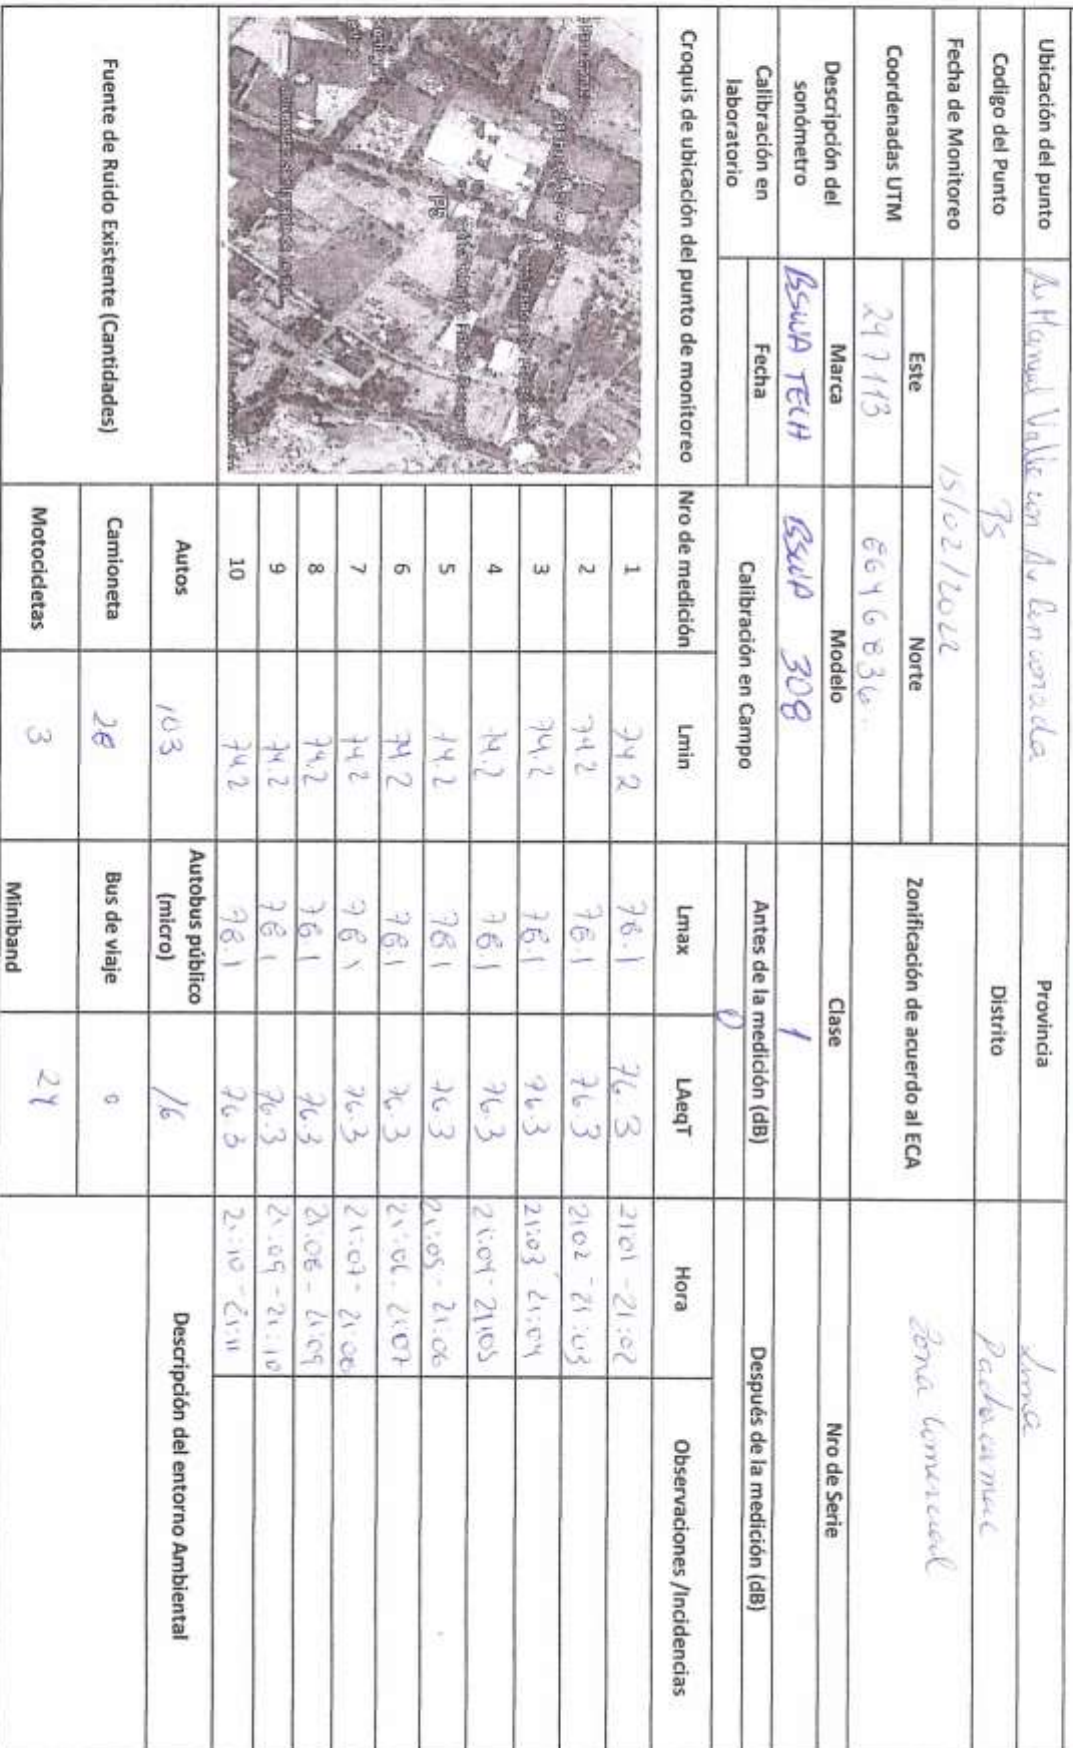 Ubicación del punto Av Manuel Valle con Av la nevada Provincia Lima
Codigo del Punto P5 Distrito Pachacamac
Fecha de Monitoreo 15/02/2022 Zonificación de acuerdo al ECA Zona Comercial
Coordenadas UTM Este Norte
297113 8646836
Descripción del sonómetro Marca Modelo Clase Nro de Serie
BSWA TECH BSWA 308 1
Calibración en laboratorio Fecha Calibración en Campo Antes de la medición (dB) Después de la medición (dB)
0
Croquis de ubicación del punto de monitoreo Nro de medición Lmin Lmax LAeqT Hora Observaciones /Incidencias
1 74.2 78.1 76.3 21:01 - 21:02
2 74.2 78.1 76.3 21:02 - 21:03
3 74.2 78.1 76.3 21:03 - 21:04
4 74.2 78.1 76.3 21:04 - 21:05
5 74.2 78.1 76.3 21:05 - 21:06
6 74.2 78.1 76.3 21:06 - 21:07
7 74.2 78.1 76.3 21:07 - 21:08
8 74.2 78.1 76.3 21:08 - 21:09
9 74.2 78.1 76.3 21:09 - 21:10
10 74.2 78.1 76.3 21:10 - 21:11
P5
Fuente de Ruido Existente (Cantidades) Autos 103 Autobus público (micro) 16 Descripción del entorno Ambiental
Camioneta 28 Bus de viaje 0
Motocicletas 3 Miniband 24